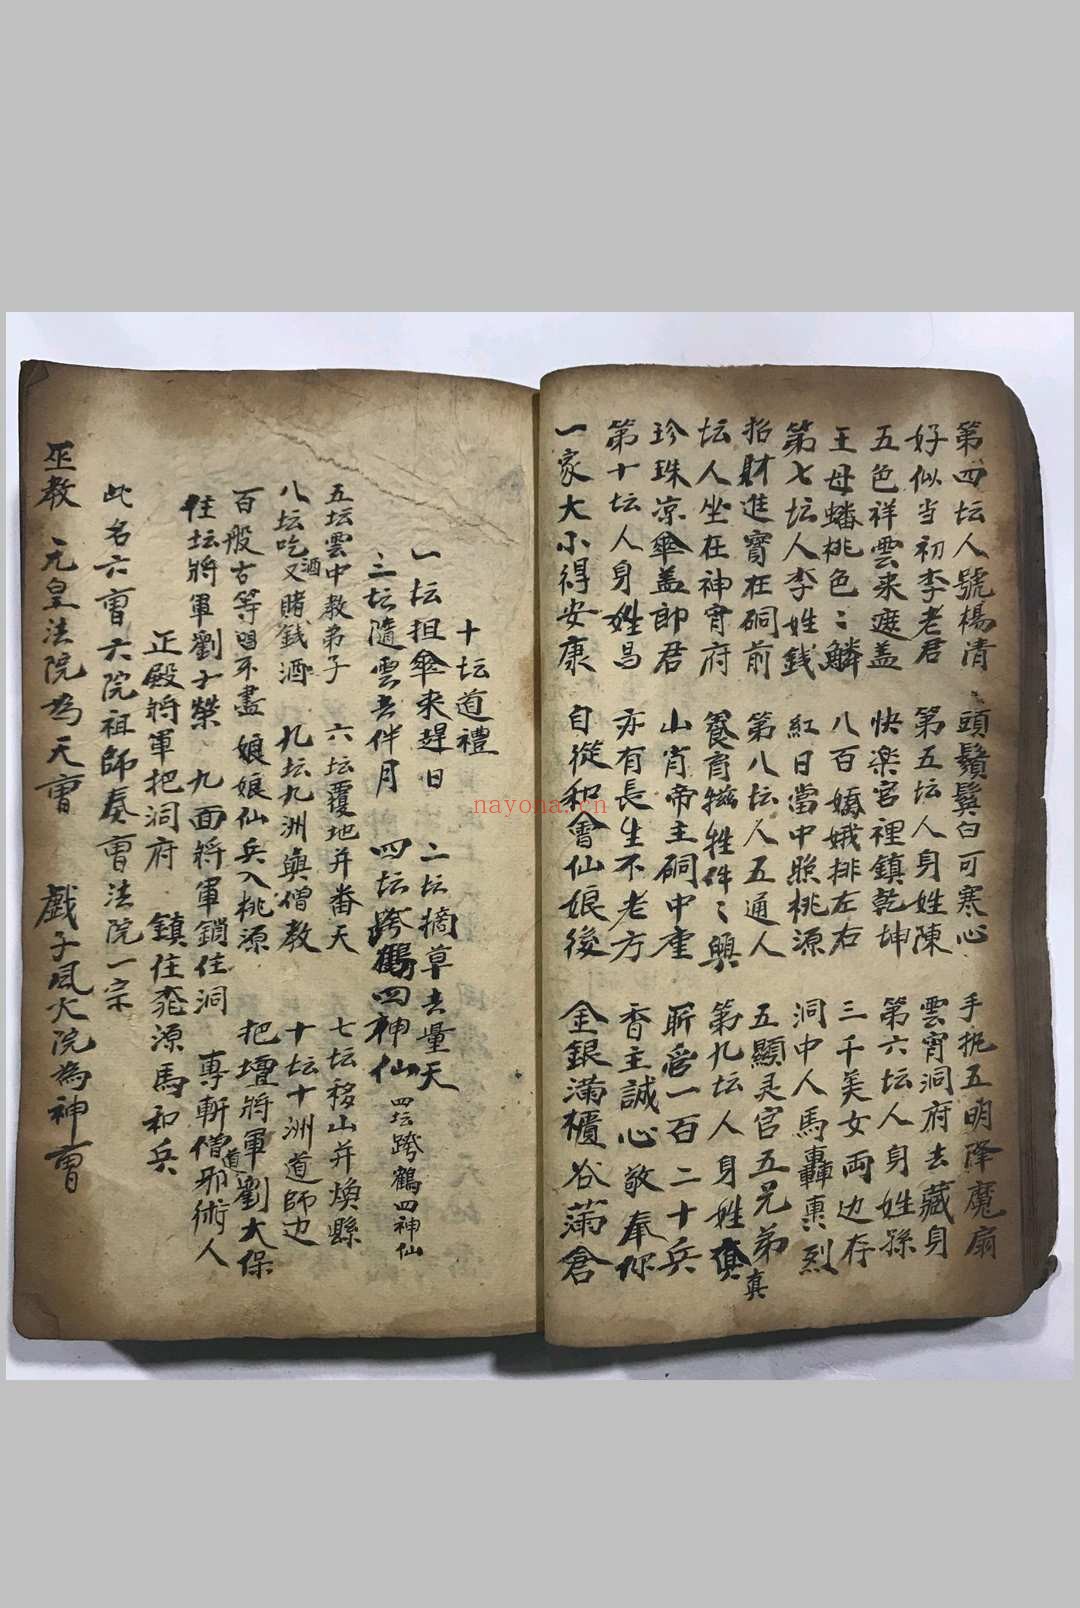 第四坛人號楊清 頭鬚鬓白可寒心 手扼五明降魔扇
好似当初李老君 第五坛人身姓陳 雲宵洞府去藏身
五色祥雲来遮盖 快楽宮裡鎮乾坤 第六坛人身姓孫
王母蟠桃色〻鱗 八百嬌娥排左右 三千美女両边存
第七坛人李姓銭 紅日當中照桃源 洞中人馬轟轟烈
招財進寳在硐前 第八坛人五通人 五顯灵官五兄弟
坛人坐在神宵府 養育犠牲件〻興 第九坛人身姓真
珍珠凉傘盖郎君 山肖帝主硐中重 斬邪一百二十兵
第十坛人身姓昌 亦有長生不老方 香主誠心敬奉你
一家大小得安康 自從和會仙娘後 金銀滿櫃谷滿倉
十坛道禮
一坛担傘来趕日 二坛摘草去量天
三坛隨雲去伴月 四坛跨鶴四神仙 四坛跨鶴四神仙
五坛雲中教弟子 六坛覆地并番天 七坛移山并煥縣
八坛吃酒又賭銭酒 九坛九洲與僧教 十坛十洲道師边
百般古等唱不盡 娘娘仙兵入桃源 把壇將軍劉大保
住坛將軍劉子榮 九面將軍鎖住洞 專斬僧道邪術人
正殿將軍把洞府 鎮住桃源馬和兵
此名六曺六院祖師奏曺法院一宗
巫教 元皇法院為天曺 戲子風火院為神曺
nayona.cn